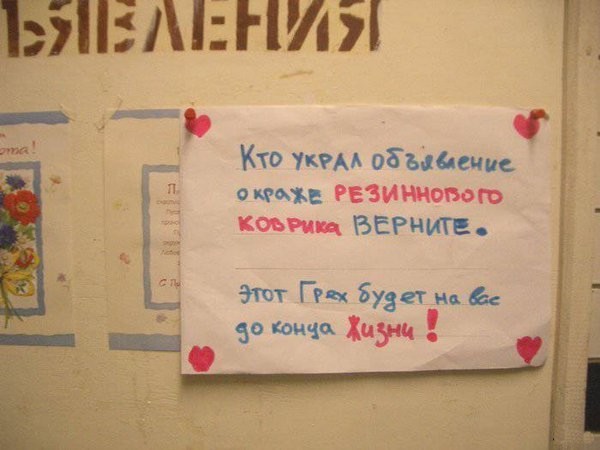 ЪЯВЛЕНИЯ
Кто УКРАЛ объявление
о краже РЕЗИННОВОГО
КОВРИКА ВЕРНИТЕ.
Этот Грех будет на вас
до конца Жизни!